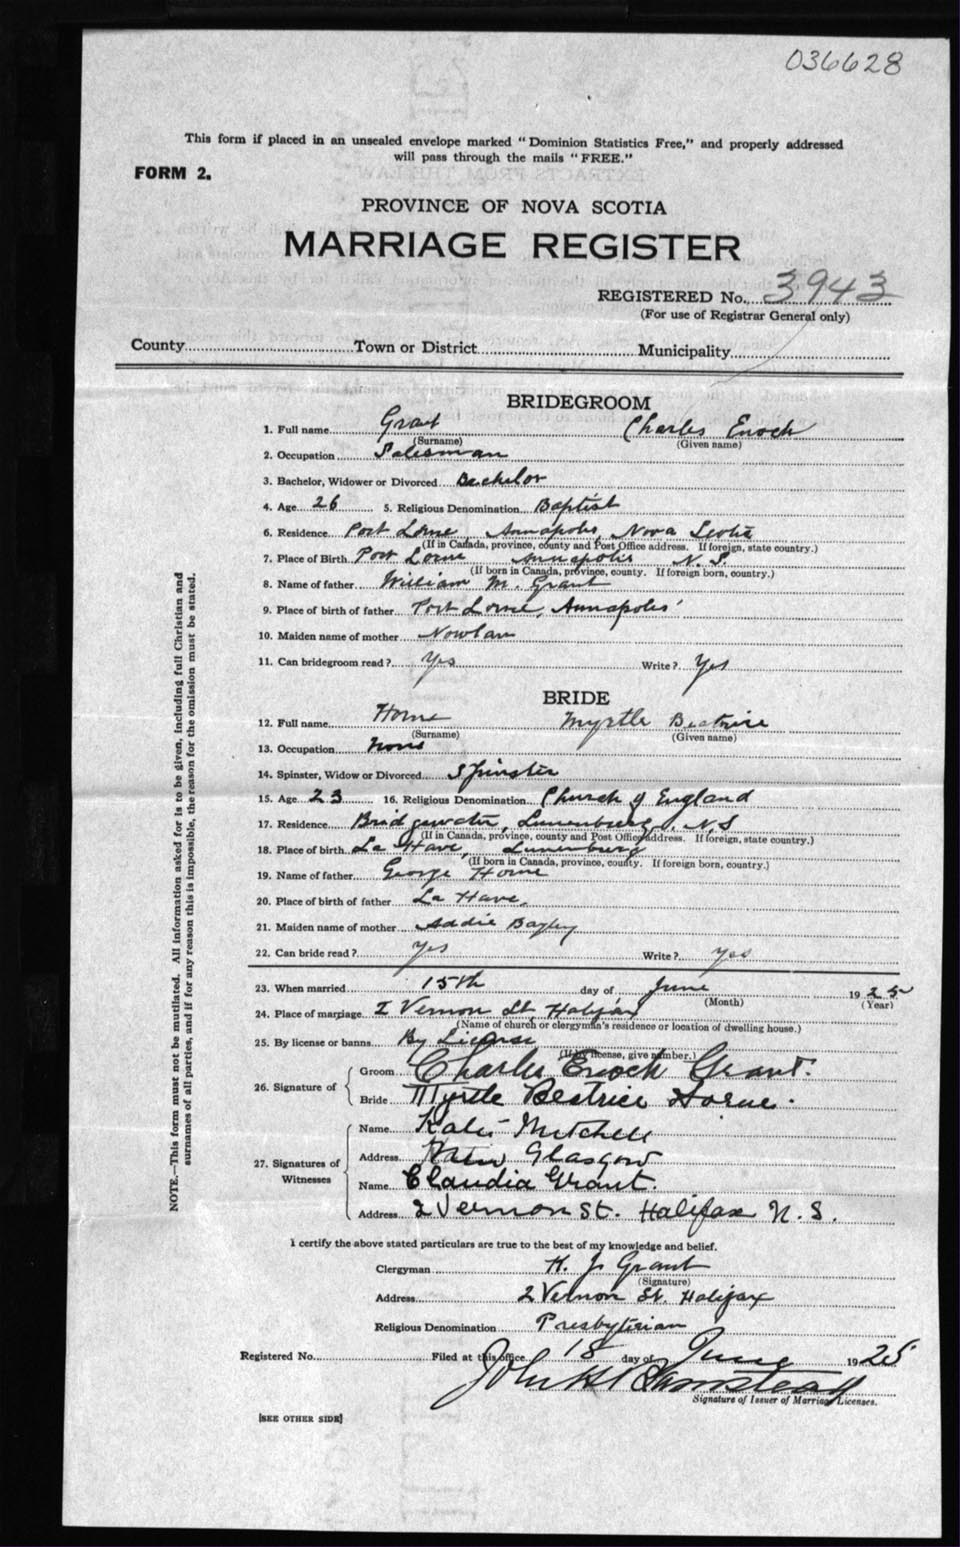 036628
This form if placed in an unsealed envelope marked "Dominion Statistics Free," and properly addressed
will pass through the mails "FREE."
FORM 2.
PROVINCE OF NOVA SCOTIA
MARRIAGE REGISTER
REGISTERED No. 3943
(For use of Registrar General only)
County Town or District Municipality
BRIDEGROOM
1. Full name Grant Charles Enoch
(Surname) (Given name)
2. Occupation Salesman
3. Bachelor, Widower or Divorced Bachelor
4. Age 26 5. Religious Denomination Baptist
6. Residence Port Lorne Annapolis, Nova Scotia
(If in Canada, province, county and Post Office address. If foreign, state country.)
7. Place of Birth Port Lorne Annapolis N. S.
(If born in Canada, province, county. If foreign born, country.)
8. Name of father William M. Grant
9. Place of birth of father Port Lorne, Annapolis
10. Maiden name of mother Nowlan
11. Can bridegroom read? Yes Write? Yes
BRIDE
12. Full name Horne Myrtle Beatrice
(Surname) (Given name)
13. Occupation None
14. Spinster, Widow or Divorced Spinster
15. Age 23 16. Religious Denomination Church of England
17. Residence Bridgewater, Lunenburg, N.S
(If in Canada, province, county and Post Office address. If foreign, state country.)
18. Place of birth La Have, Lunenburg
(If born in Canada, province, county. If foreign born, country.)
19. Name of father George Horne
20. Place of birth of father La Have.
21. Maiden name of mother Addie
22. Can bride read? Yes Write? Yes
23. When married 15th day of June 1925
(Month) (Year)
24. Place of marriage 2 Vernon St. Halifax
(Name of church or clergyman's residence or location of dwelling house.)
25. By license or banns By License
(If by license, give number.)
26. Signature of
Groom Charles Enoch Grant.
Bride Myrtle Beatrice Horne.
27. Signatures of Witnesses
Name Katie Mitchell
Address New Glasgow
Name Claudia Grant.
Address 2 Vernon St. Halifax N. S.
I certify the above stated particulars are true to the best of my knowledge and belief.
Clergyman H. J. Grant
(Signature)
Address 2 Vernon St. Halifax
Religious Denomination Presbyterian
Registered No. Filed at this office 18 day of June 1925
John H
Signature of Issuer of Marriage Licenses.
[SEE OTHER SIDE]
NOTE.—This form must not be mutilated. All information asked for is to be given, including full Christian and
surnames of all parties, and if for any reason this is impossible, the reason for the omission must be stated.